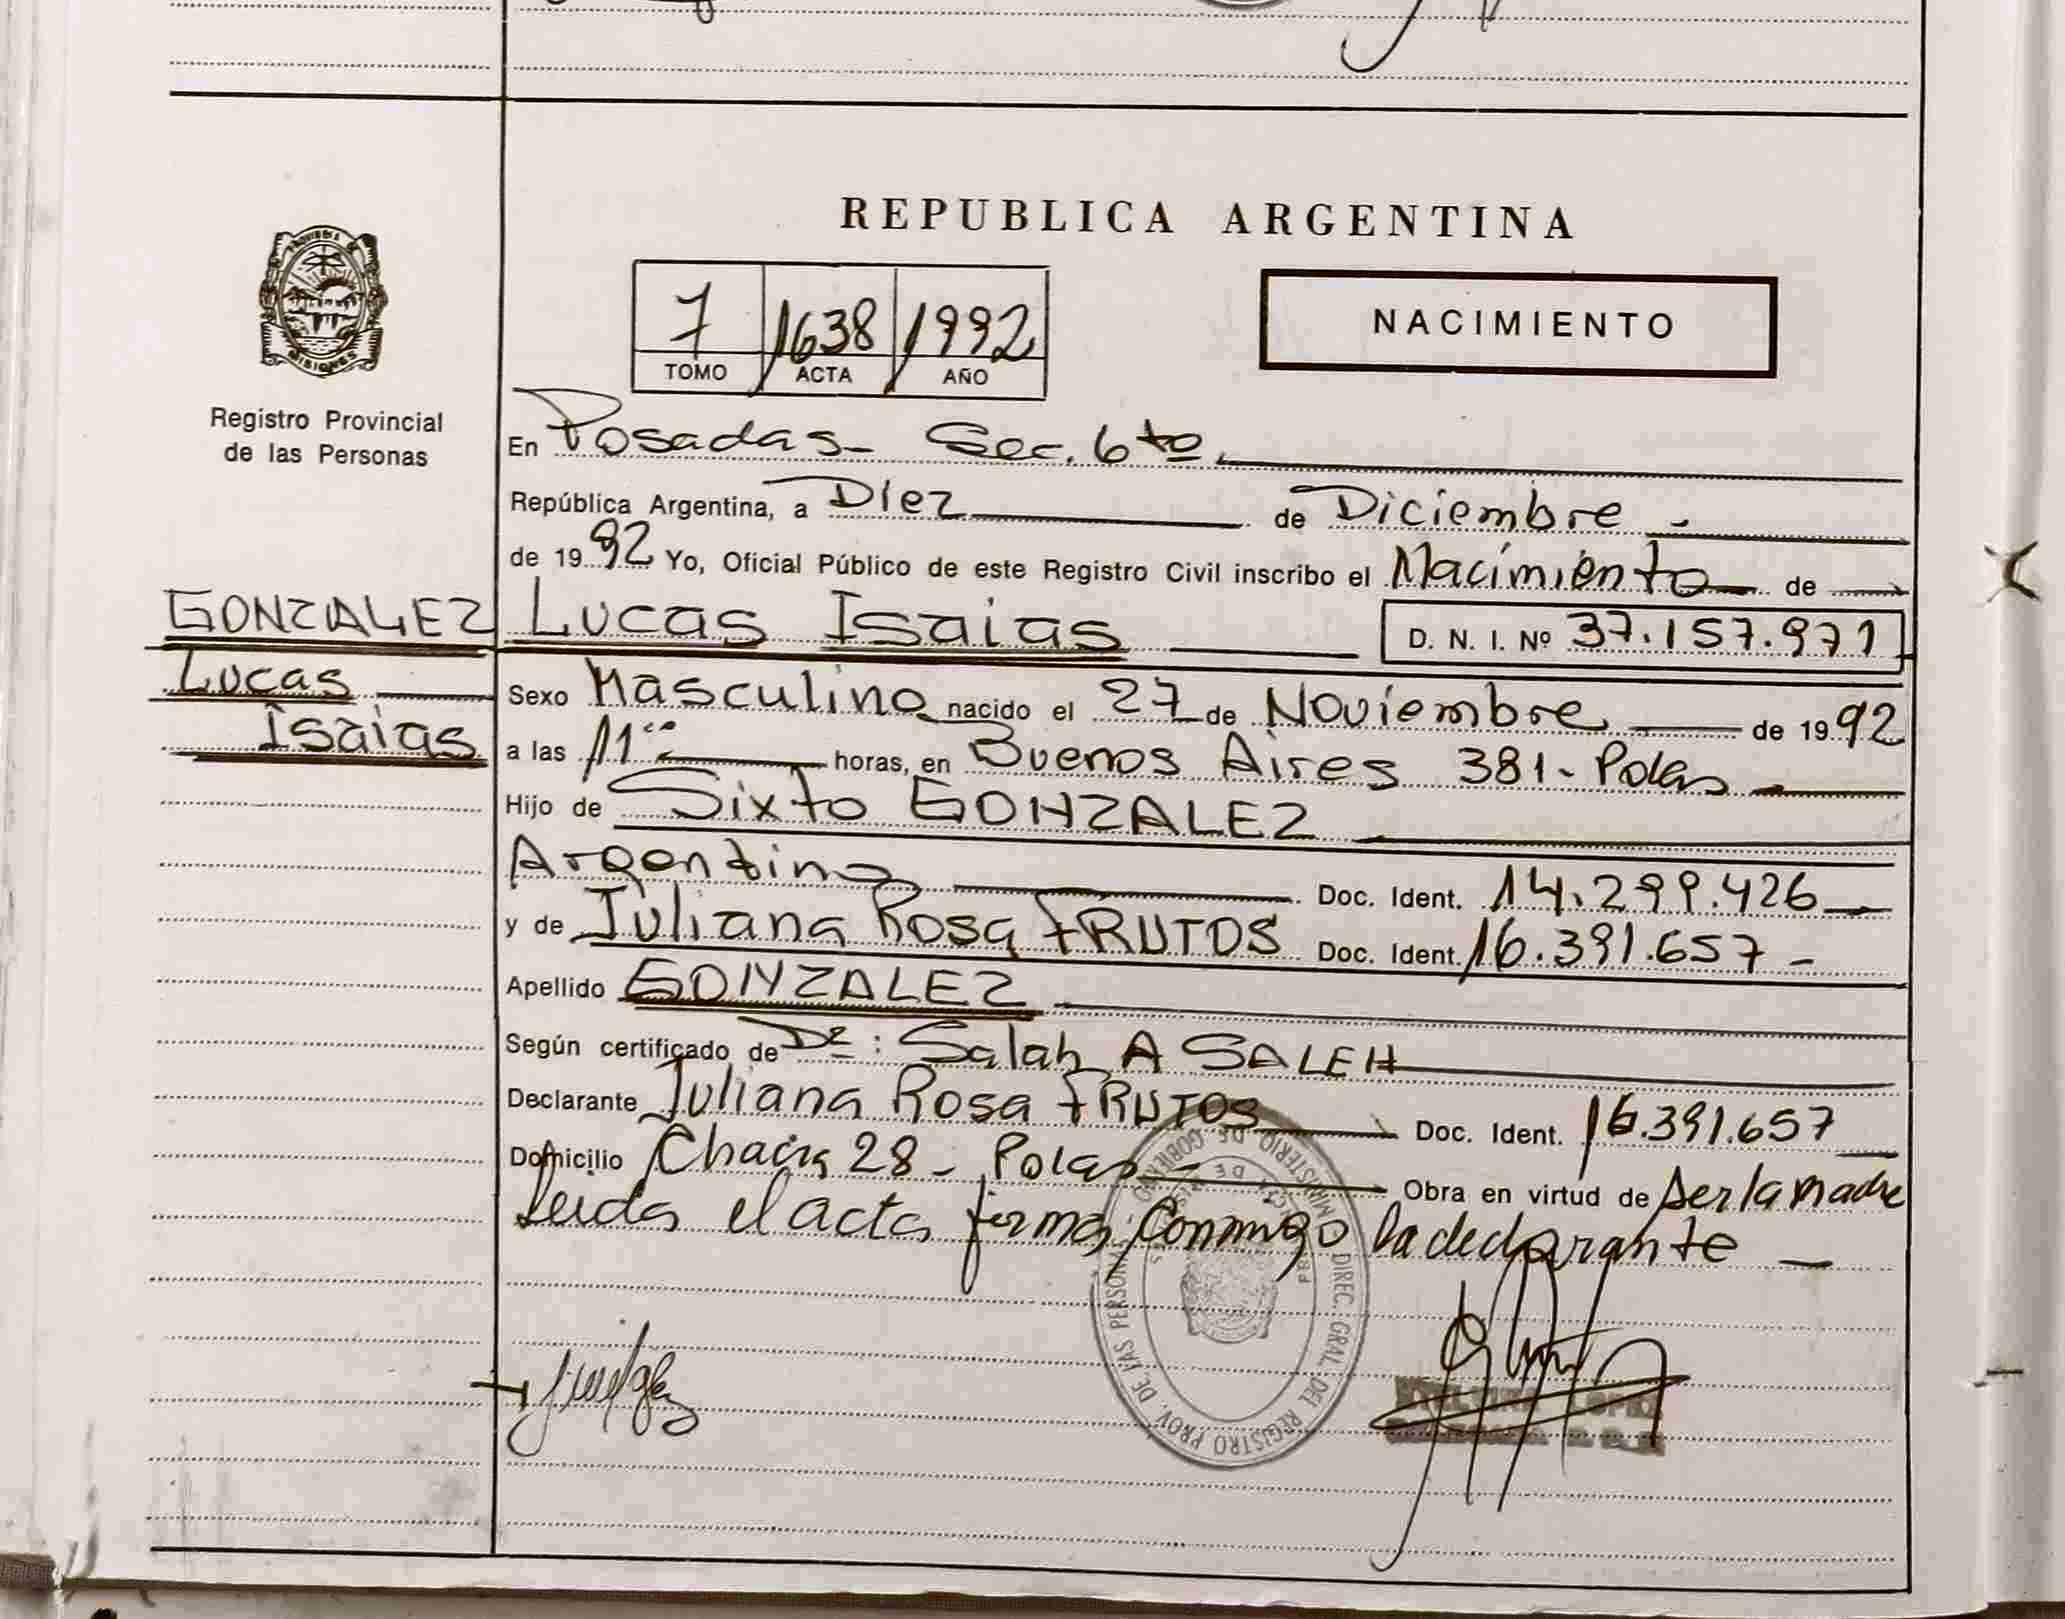 REPUBLICA ARGENTINA
7 1638 1992
TOMO ACTA AÑO
NACIMIENTO
PROVINCIA DE
MISIONES
Registro Provincial
de las Personas
GONZALEZ
Lucas
Isaias
En Posadas - Sec. 6ta.
República Argentina, a Diez de Diciembre
de 1992 Yo, Oficial Público de este Registro Civil inscribo el Nacimiento de
Lucas Isaias D. N. I. Nº 37.157.971
Sexo Masculino nacido el 27 de Noviembre de 1992
a las 11 horas, en Buenos Aires 381 - Pdas
Hijo de Sixto GONZALEZ
Argentino Doc. Ident. 14.299.426
y de Juliana Rosa FRUTOS Doc. Ident. 16.391.657 -
Apellido GONZALEZ
Según certificado de Dr: Salah A SALEH
Declarante Juliana Rosa FRUTOS Doc. Ident. 16.391.657
Domicilio Chacra 28 - Pdas - Obra en virtud de ser la madre
Leida el acta firma conmigo la declarante -
MINISTERIO DE GOBIERNO
DIREC. GRAL. DEL REGISTRO PROV. DE LAS PERSONAS
LOPEZ